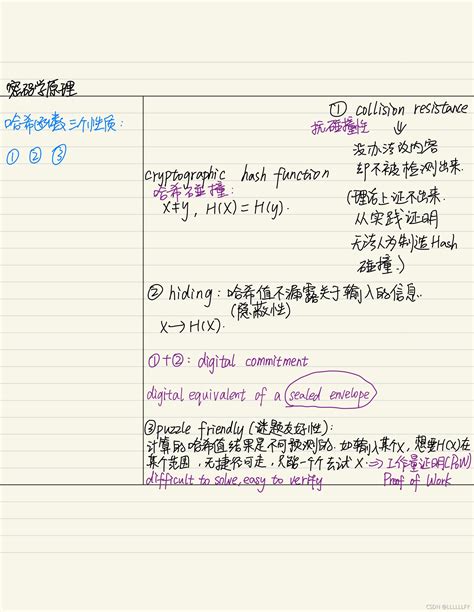 密码学原理
哈希函数三个性质:
① ② ③
① collision resistance
抗碰撞性
没办法改内容
却不被检测出来.
cryptographic hash function
哈希碰撞:
x≠y, H(x)=H(y).
(理论上证不出来.
从实践证明
无法人为制造Hash
碰撞.)
② hiding: 哈希值不漏露关于输入的信息.
(隐蔽性)
x→H(x).
①+②: digital commitment
digital equivalent of a sealed envelope
③ puzzle friendly (谜题友好性):
计算的哈希值结果是不可预测的. 如输入某个x, 想要H(x)在
某个范围, 无捷径可走, 只能一个个去试x. ⇒ 工作量证明(PoW)
difficult to solve, easy to verify Proof of Work
CSDN @LLLLLLFY